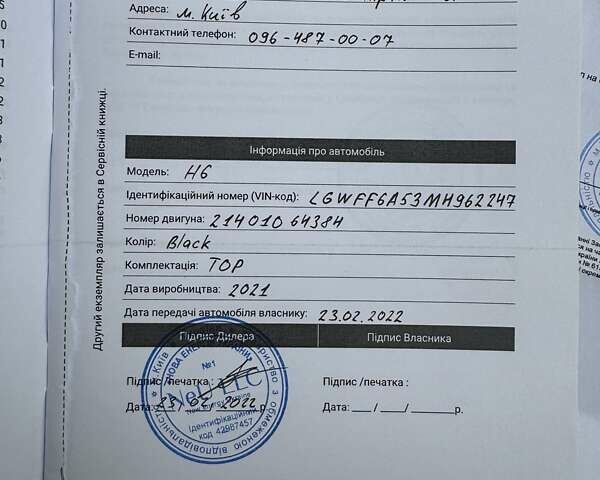 Адреса: м. Київ
Контактний телефон: 096-487-00-07
E-mail:
Другий екземпляр залишається в Сервісній книжці.
Інформація про автомобіль
Модель: H6
Ідентифікаційний номер (VIN-код): LGWFF6A53MH962247
Номер двигуна: 21401064384
Колір: Black
Комплектація: TOP
Дата виробництва: 2021
Дата передачі автомобіля власнику: 23.02.2022
Підпис Дилера
Підпис Власника
№1
Підпис /печатка :
Підпис /печатка :
NeU LLC
Дата: 23/02/2022 р
Дата: ___ / ___ / ______ р.
Ідентифікаційний
код 42987457